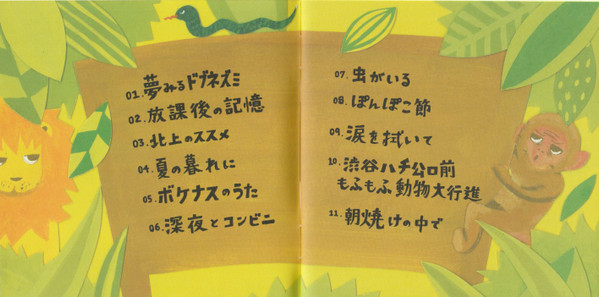 01. 夢みるドブネズミ
02. 放課後の記憶
03. 北上のススメ
04. 夏の暮れに
05. ボケナスのうた
06. 深夜とコンビニ
07. 虫がいる
08. ぽんぽこ節
09. 涙を拭いて
10. 渋谷ハチ公口前
もふもふ動物大行進
11. 朝焼けの中で